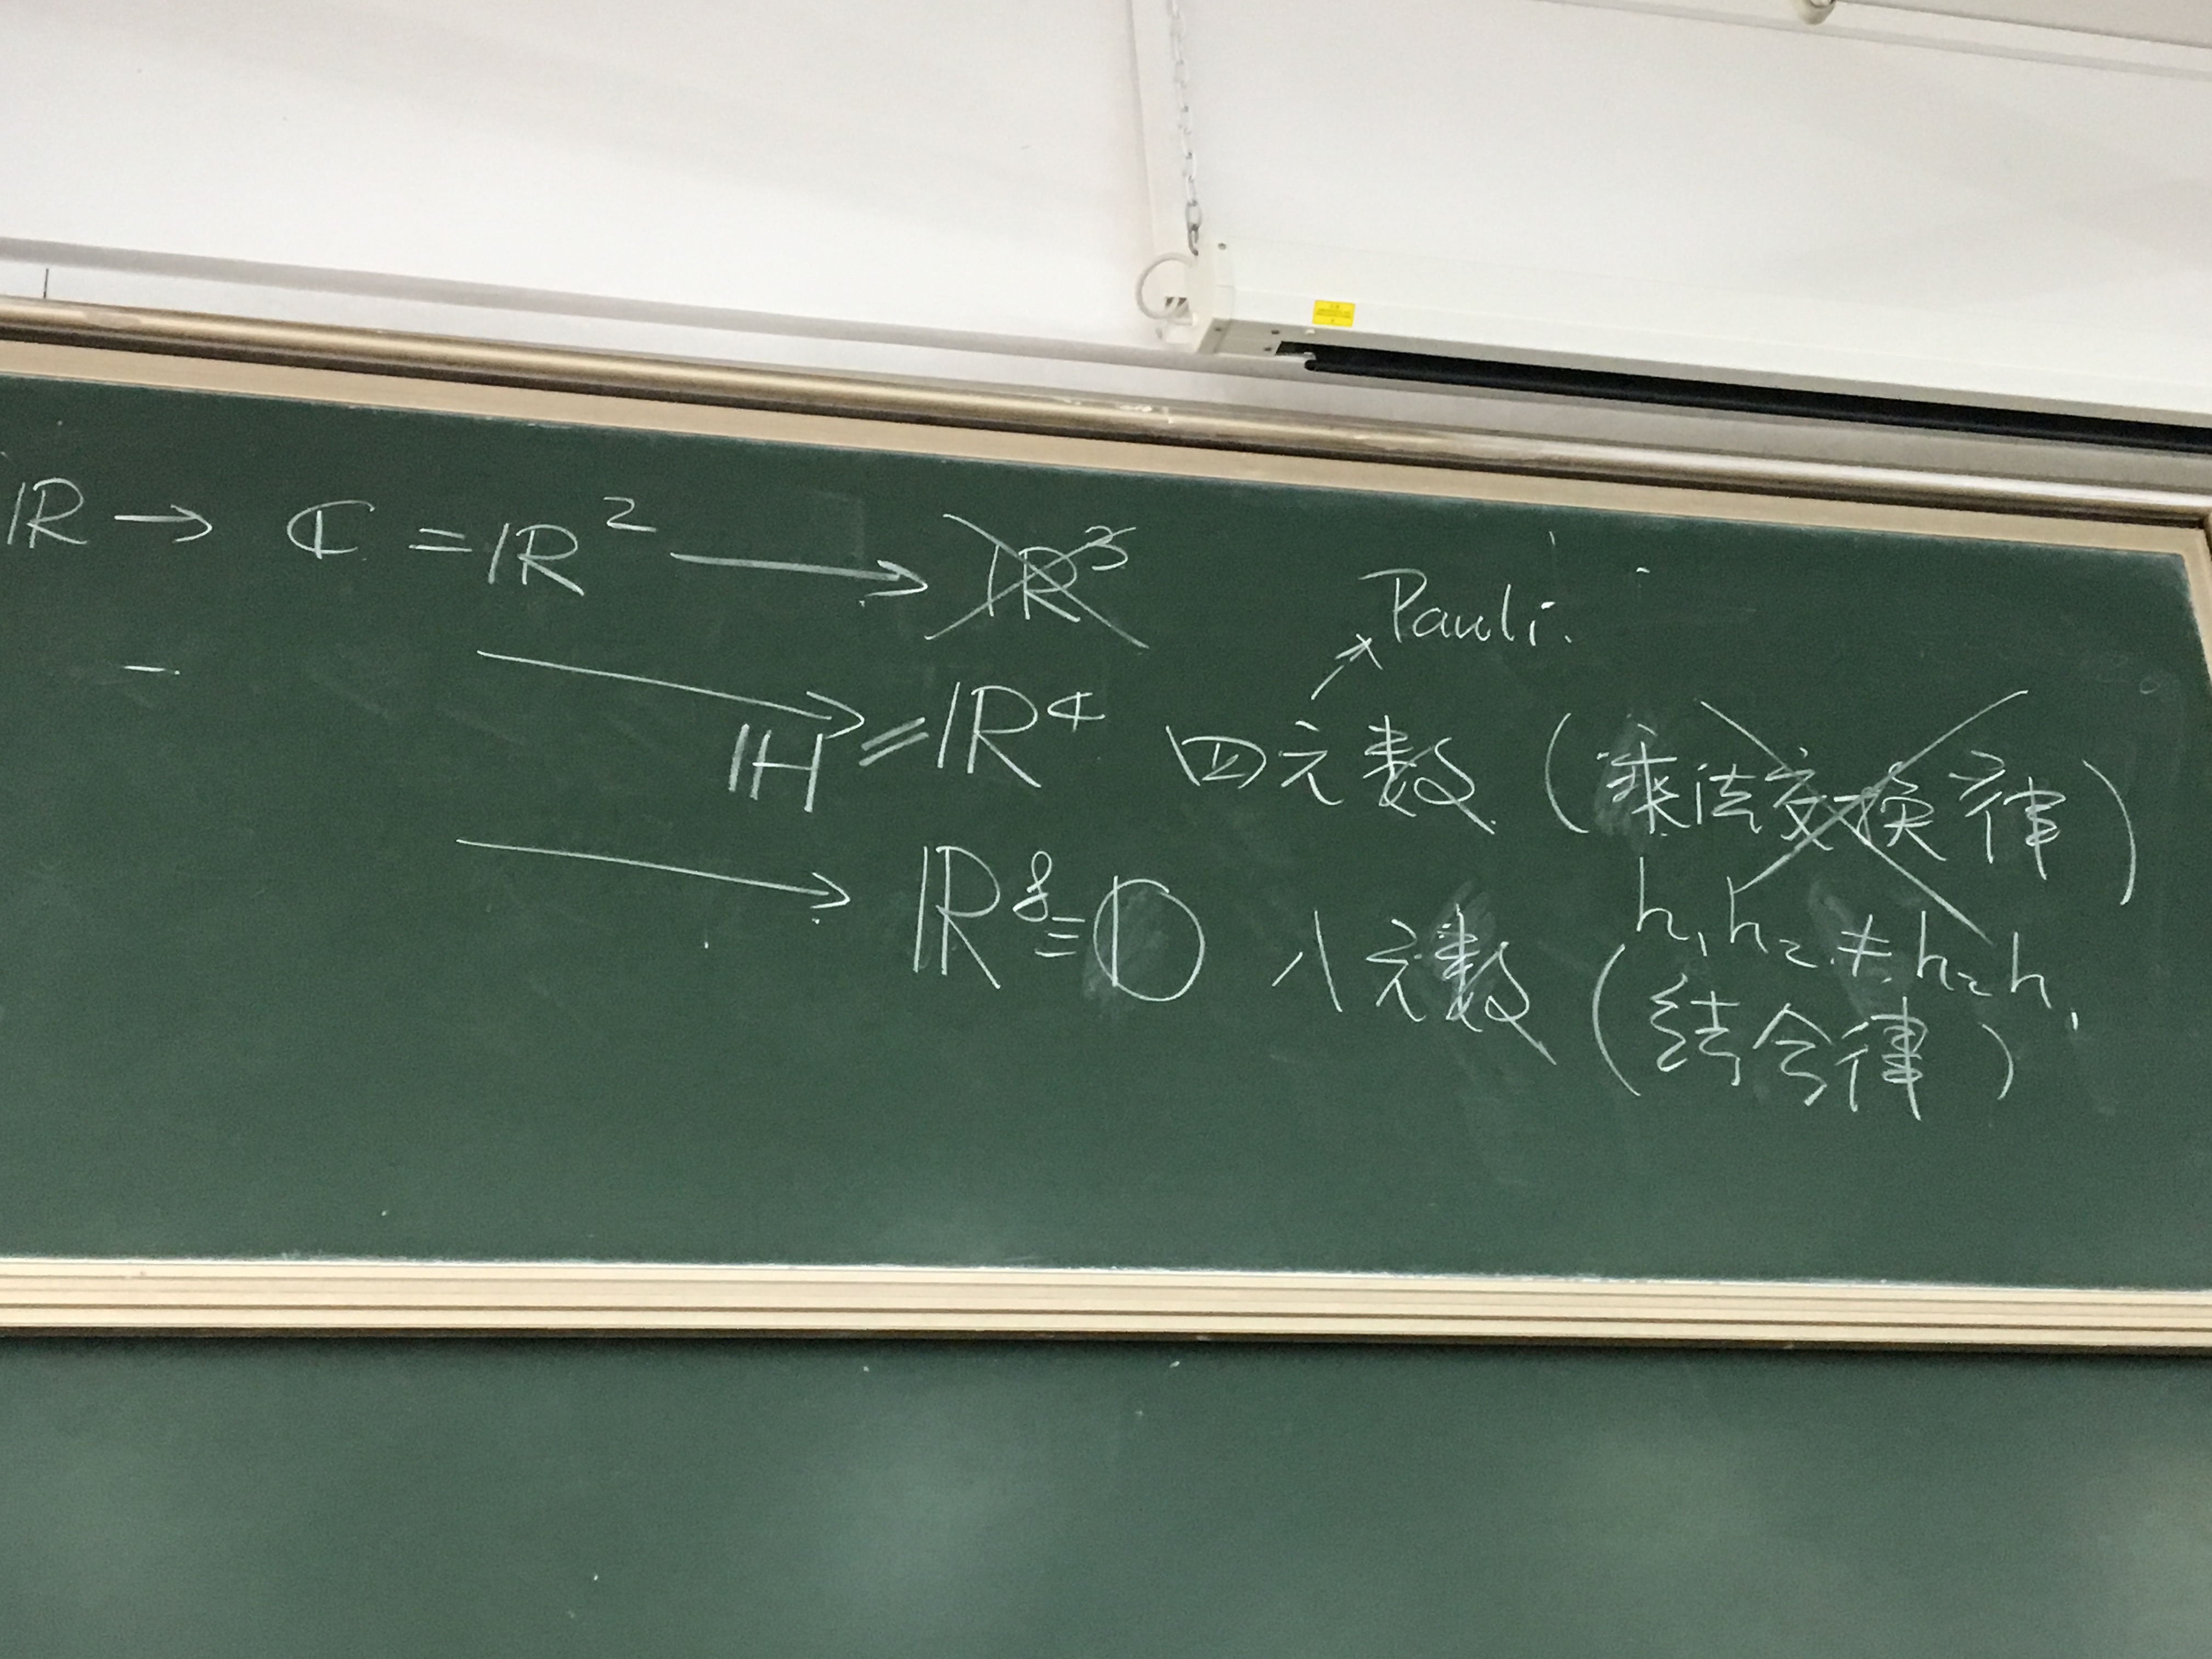 ℝ → ℂ = ℝ² → ℝ³
Pauli.
→ ℍ = ℝ⁴ 四元数 (乘法交换律)
h₁h₂ ≠ h₂h₁
→ ℝ⁸ = 𝕆 八元数 (结合律)